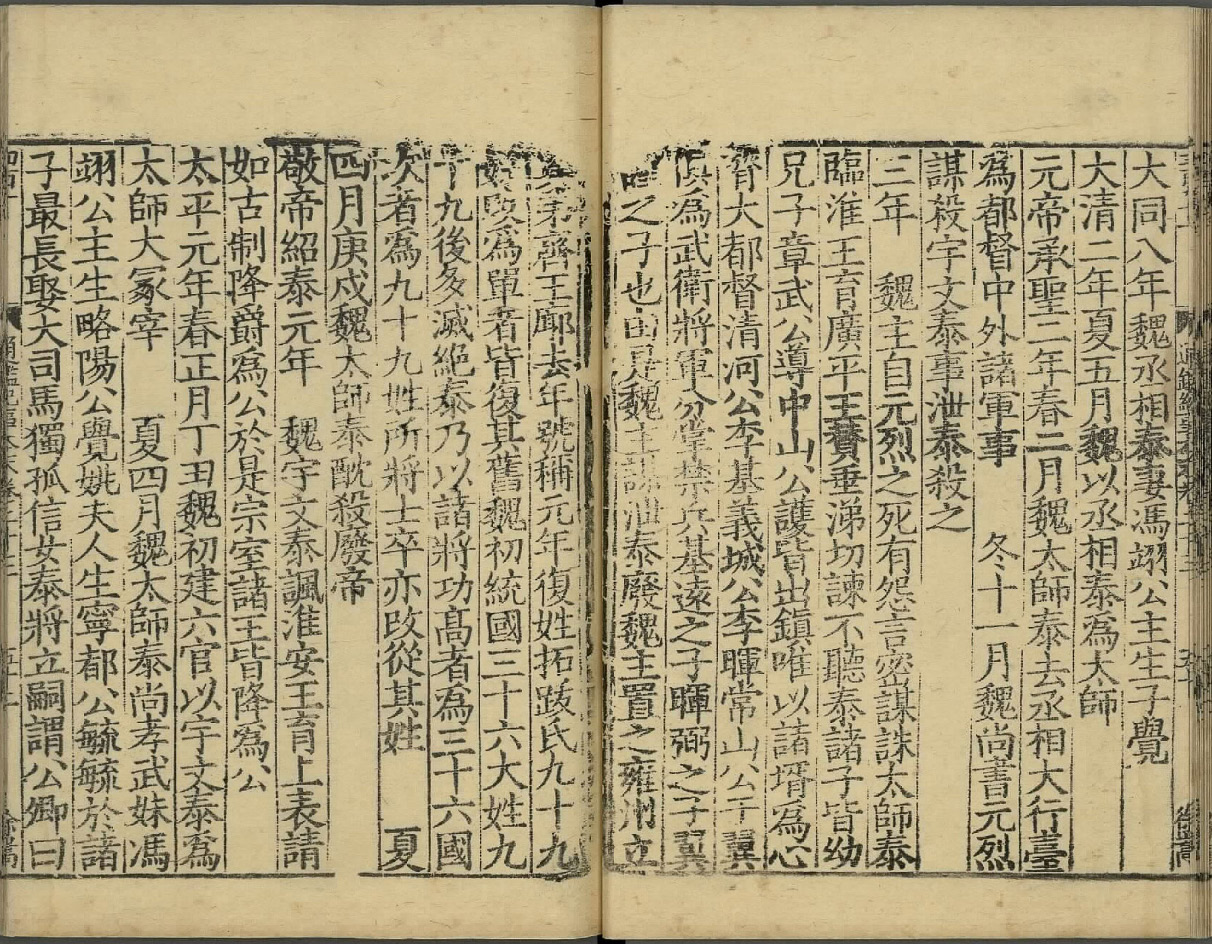 大同八年魏丞相泰妻馮翊公主生子覺
大清二年夏五月魏以丞相泰為太師
元帝承聖二年春二月魏太師泰去丞相大行臺
為都督中外諸軍事　冬十一月魏尚書元烈
謀殺宇文泰事泄泰殺之
三年　魏主自元烈之死有怨言密謀誅太師泰
臨淮王育廣平王贊垂涕切諫不聽泰諸子皆幼
兄子章武公導中山公護皆出鎮唯以諸壻為心
齊大都督清河公李基義城公李暉常山公于翼
俱為武衛將軍分掌禁兵基遠之子暉弼之子翼
之子也由是魏主謀泄泰廢魏主置之雍州立
齊王廓去年號稱元年復姓拓跋氏九十九
姓改為單者皆復其舊魏初統國三十六大姓九
十九後多滅絕泰乃以諸將功高者為三十六國
次者為九十九姓所將士卒亦改從其姓　夏
四月庚戌魏太師泰酖殺廢帝
敬帝紹泰元年　魏宇文泰諷淮安王育上表請
如古制降爵爲公於是宗室諸王皆降為公
太平元年春正月丁丑魏初建六官以宇文泰為
太師大冢宰　夏四月魏太師泰尚孝武妹馮
翊公主生略陽公覺姚夫人生寧都公毓毓於諸
子最長娶大司馬獨孤信女泰將立嗣謂公卿曰